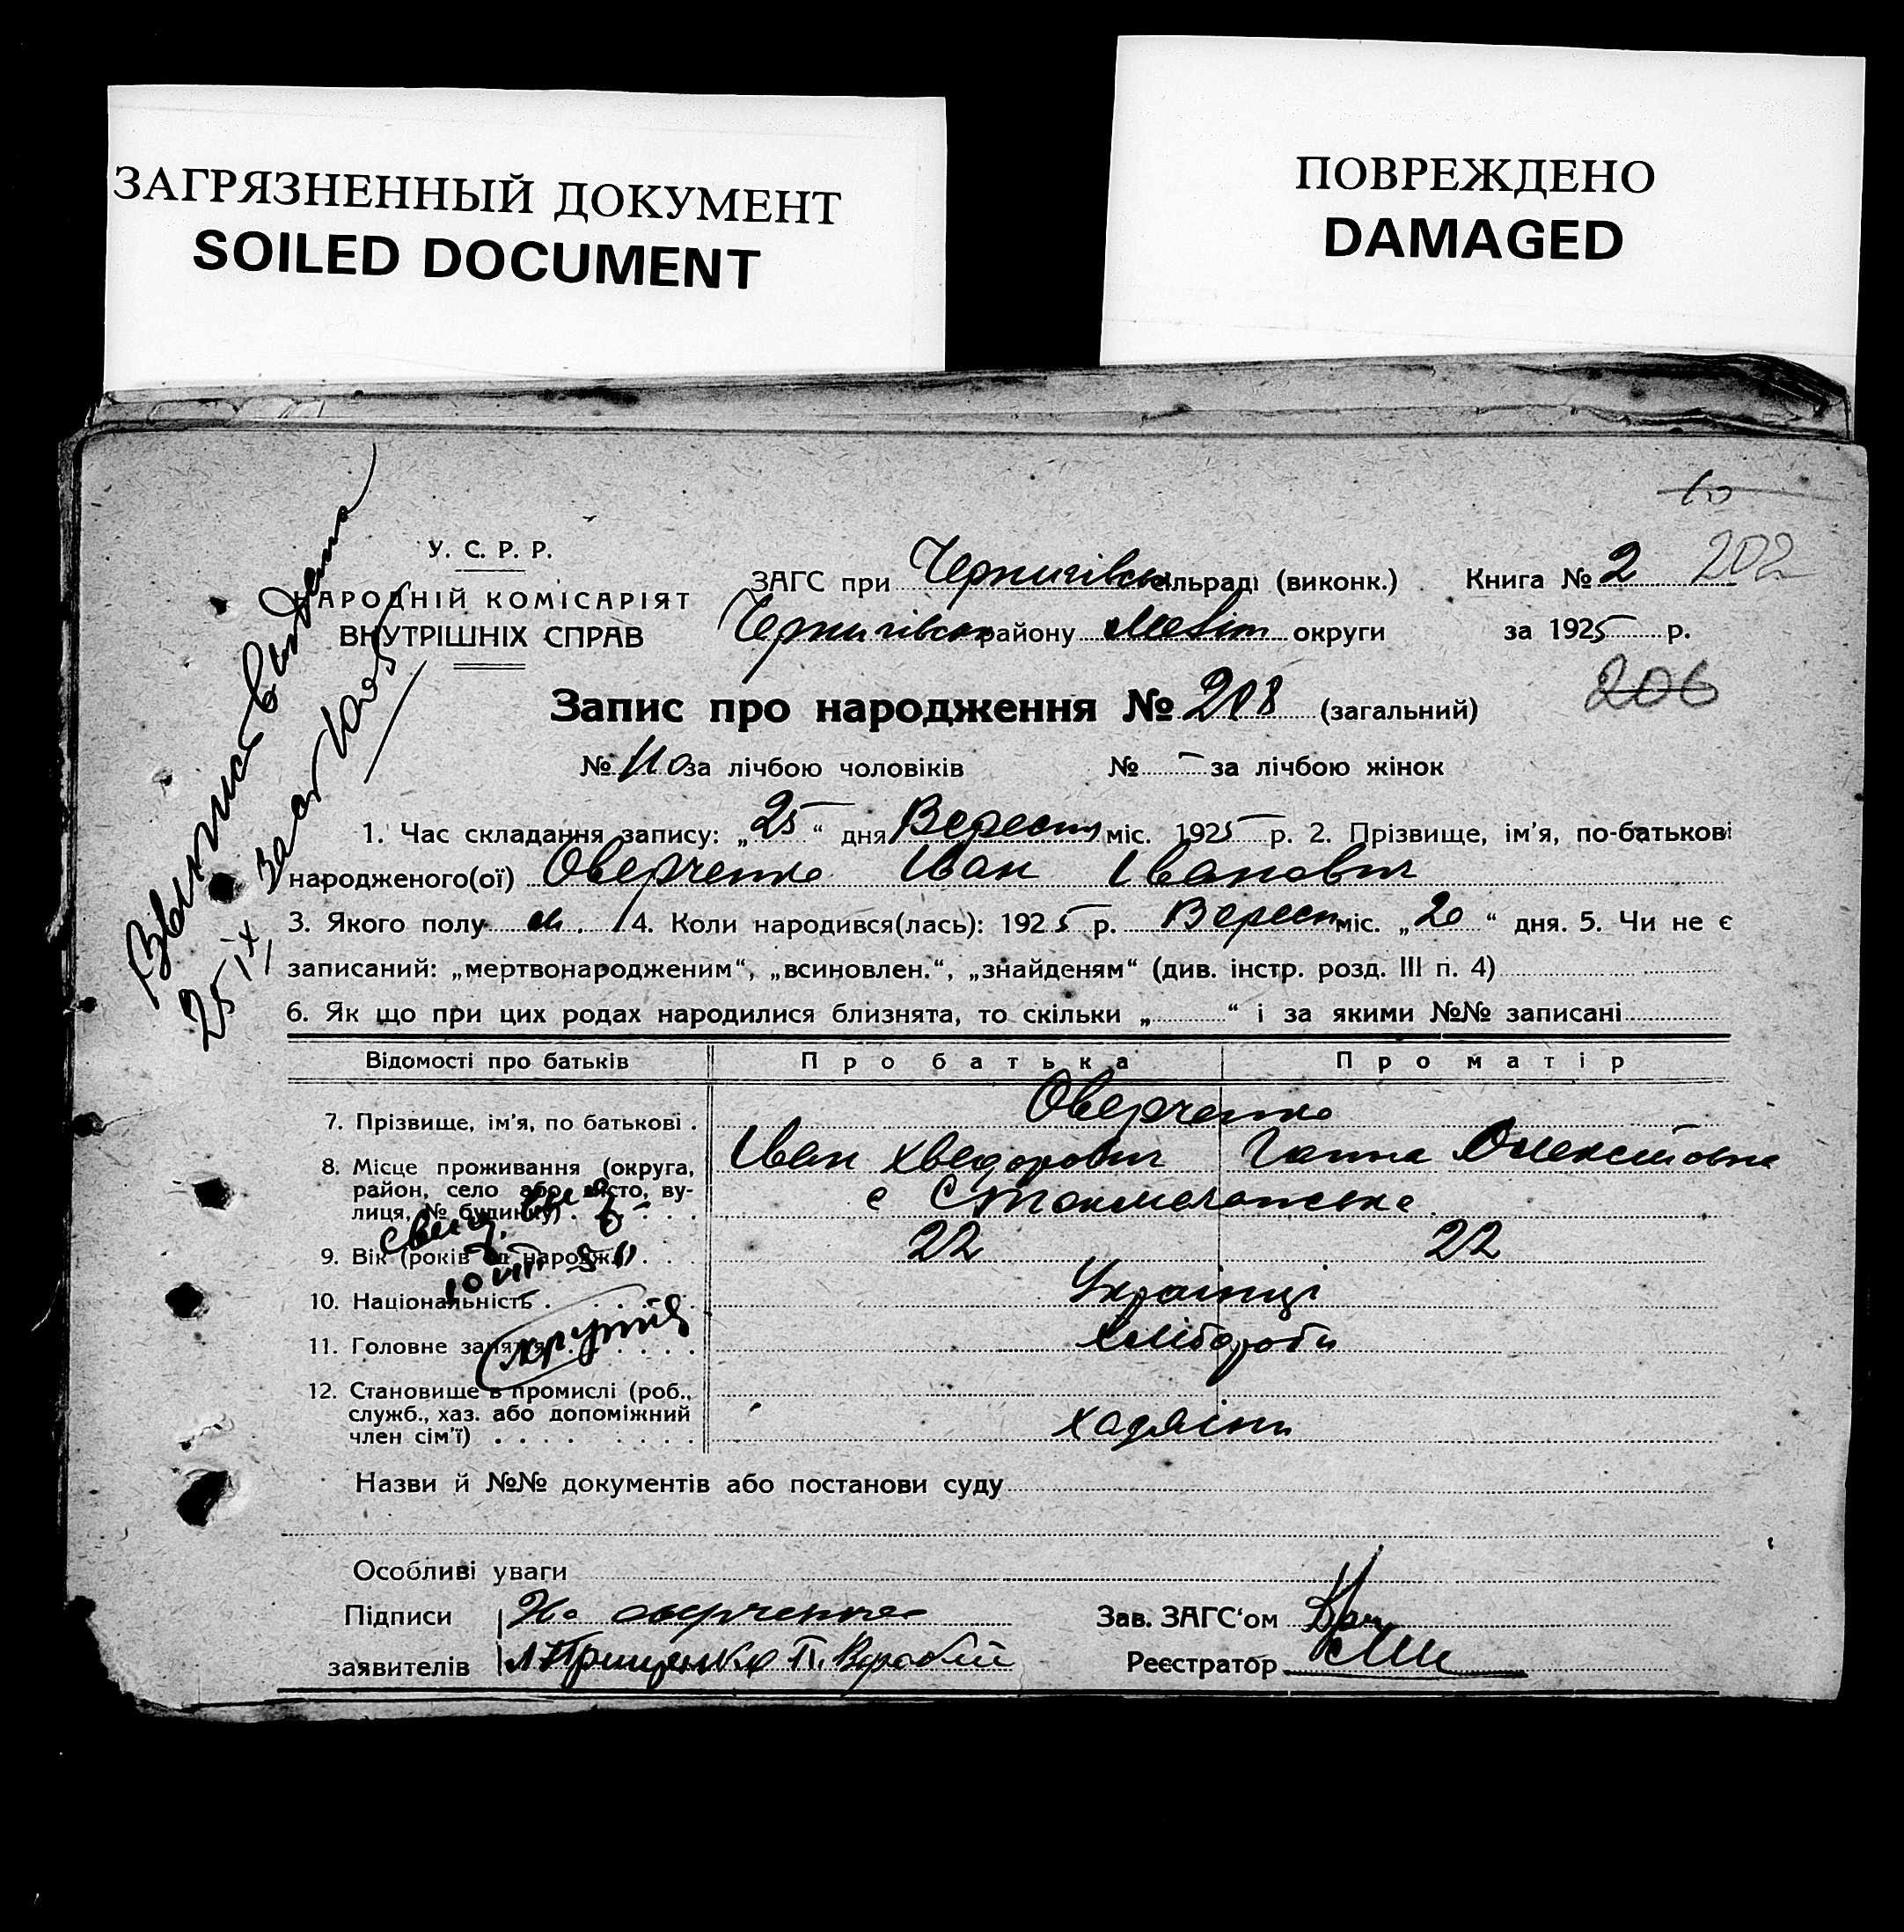 ЗАГРЯЗНЕННЫЙ ДОКУМЕНТ
SOILED DOCUMENT
ПОВРЕЖДЕНО
DAMAGED
У. С. Р. Р.
НАРОДНІЙ КОМІСАРІЯТ
ВНУТРІШНІХ СПРАВ
202
ЗАГС при Чернигівськ сільраді (виконк.) Книга № 2
Чернигівськ району Меліт округи за 1925 р.
206
Запис про народження № 208 (загальний)
№ 110 за лічбою чоловіків № - за лічбою жінок
1. Час складання запису: „25“ дня Вересня міс. 1925 р. 2. Прізвище, ім'я, по-батькові
народженого(ої) Оверченко Іван Іванович
3. Якого полу м. 4. Коли народився(лась): 1925 р. Вересн міс. „20“ дня. 5. Чи не є
записаний: „мертвонародженим“, „всиновлен.“, „знайденям“ (див. інстр. розд. III п. 4)
6. Як що при цих родах народилися близнята, то скільки „ “ і за якими №№ записані
Відомості про батьків Про батька Про матір
7. Прізвище, ім'я, по батькові . Оверченко
Іван Хведорович Ганна Олексіівна
8. Місце проживання (округа,
район, село або місто, ву-
лиця, № будинку) . с Стокмоганське
9. Вік (років від народж.) . . . 22 22
10. Національність . Українці
11. Головне заняття Хлібороби
12. Становище в промислі (роб.,
служб., хаз. або допоміжний
член сім'ї) . хазяіни
Назви й №№ документів або постанови суду
Особливі уваги
Підписи оверченко Зав. ЗАГС'ом
заявителів П. Воробій Реєстратор
Выпись выдана
25/IX